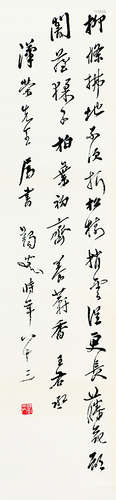 柳條拂地不須折松樹梢雲從更長藤花欲
闇藏猱子柏葉初齊養麝香 王右丞
先生属書 蠲叟時年八十三